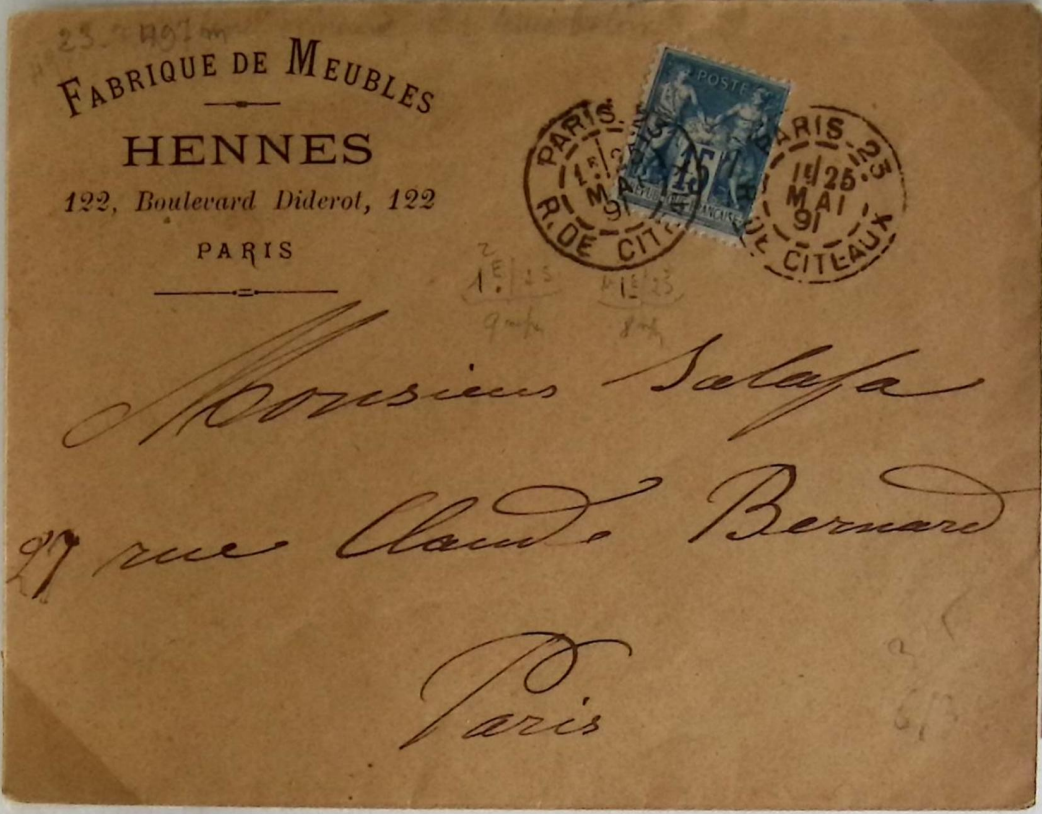 FABRIQUE DE MEUBLES
HENNES
122, Boulevard Diderot, 122
PARIS
POSTE
15
PARIS. 23
1E 25
MAI
91
R. DE CITEAUX
PARIS. 23
1E 25
MAI
91
R. DE CITEAUX
1E/23
1E/23
Monsieur Salafa
27 rue Claude Bernard
Paris